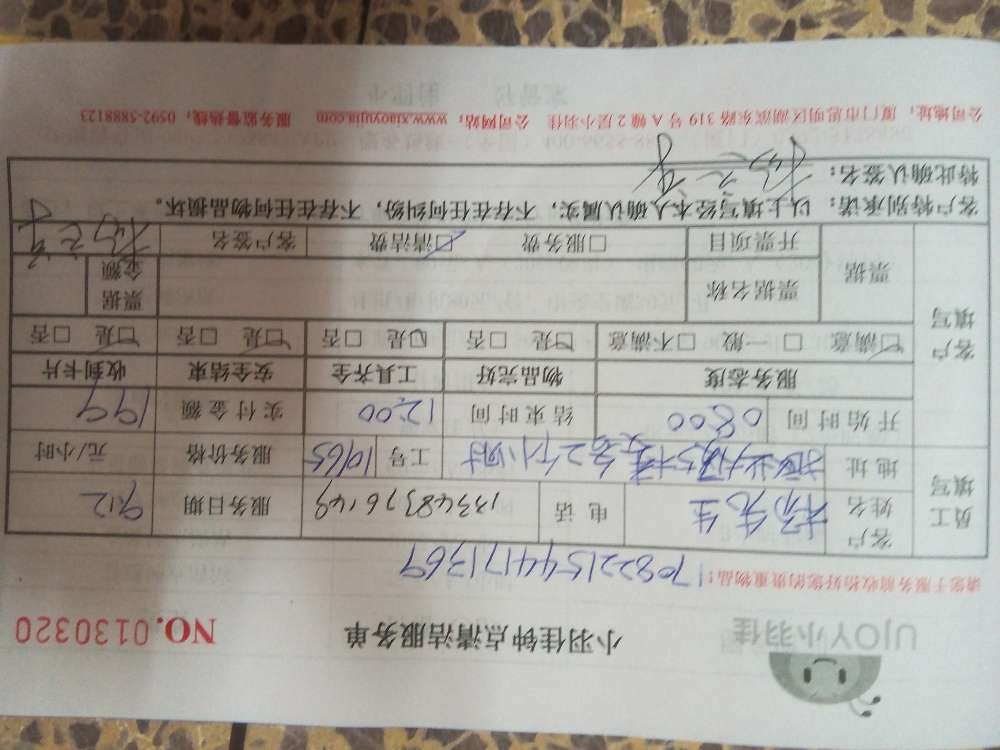 UJOY小羽佳
小羽佳钟点清洁服务单
NO.0130320
请您于服务前收拾好您的贵重物品：1708221544171369
员工填写
客户姓名 杨先生 电话 13348376149 服务日期 9.12
地址 2个小时 工号 10165 服务价格 元/小时
开始时间 08:00 结束时间 12:00 实付金额 199
客户填写
服务态度 物品完好 工具齐全 安全结束 收到卡片
☑满意 □一般 □不满意 ☑是 □否 ☑是 □否 ☑是 □否 ☑是 □否
票据 票据名称 票据金额
开票项目 □服务费 ☑清洁费 客户签名
客户特别承诺：以上填写经本人确认属实，不存在任何纠纷，不存在任何物品损坏。
特此确认签名：
公司地址：厦门市思明区湖滨东路319号A幢2层小羽佳 公司网站：www.xiaoyujia.com 服务监督热线：0592-5888123